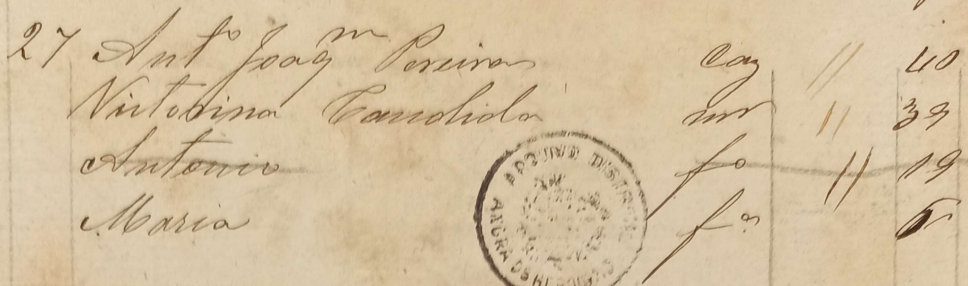 27 Antº Joaqm Pereira caz // 40
Victorina Candida mr // 39
Antonio fº // 19
Maria fª
ARQUIVO DISTRITAL
ANGRA DO HEROISMO